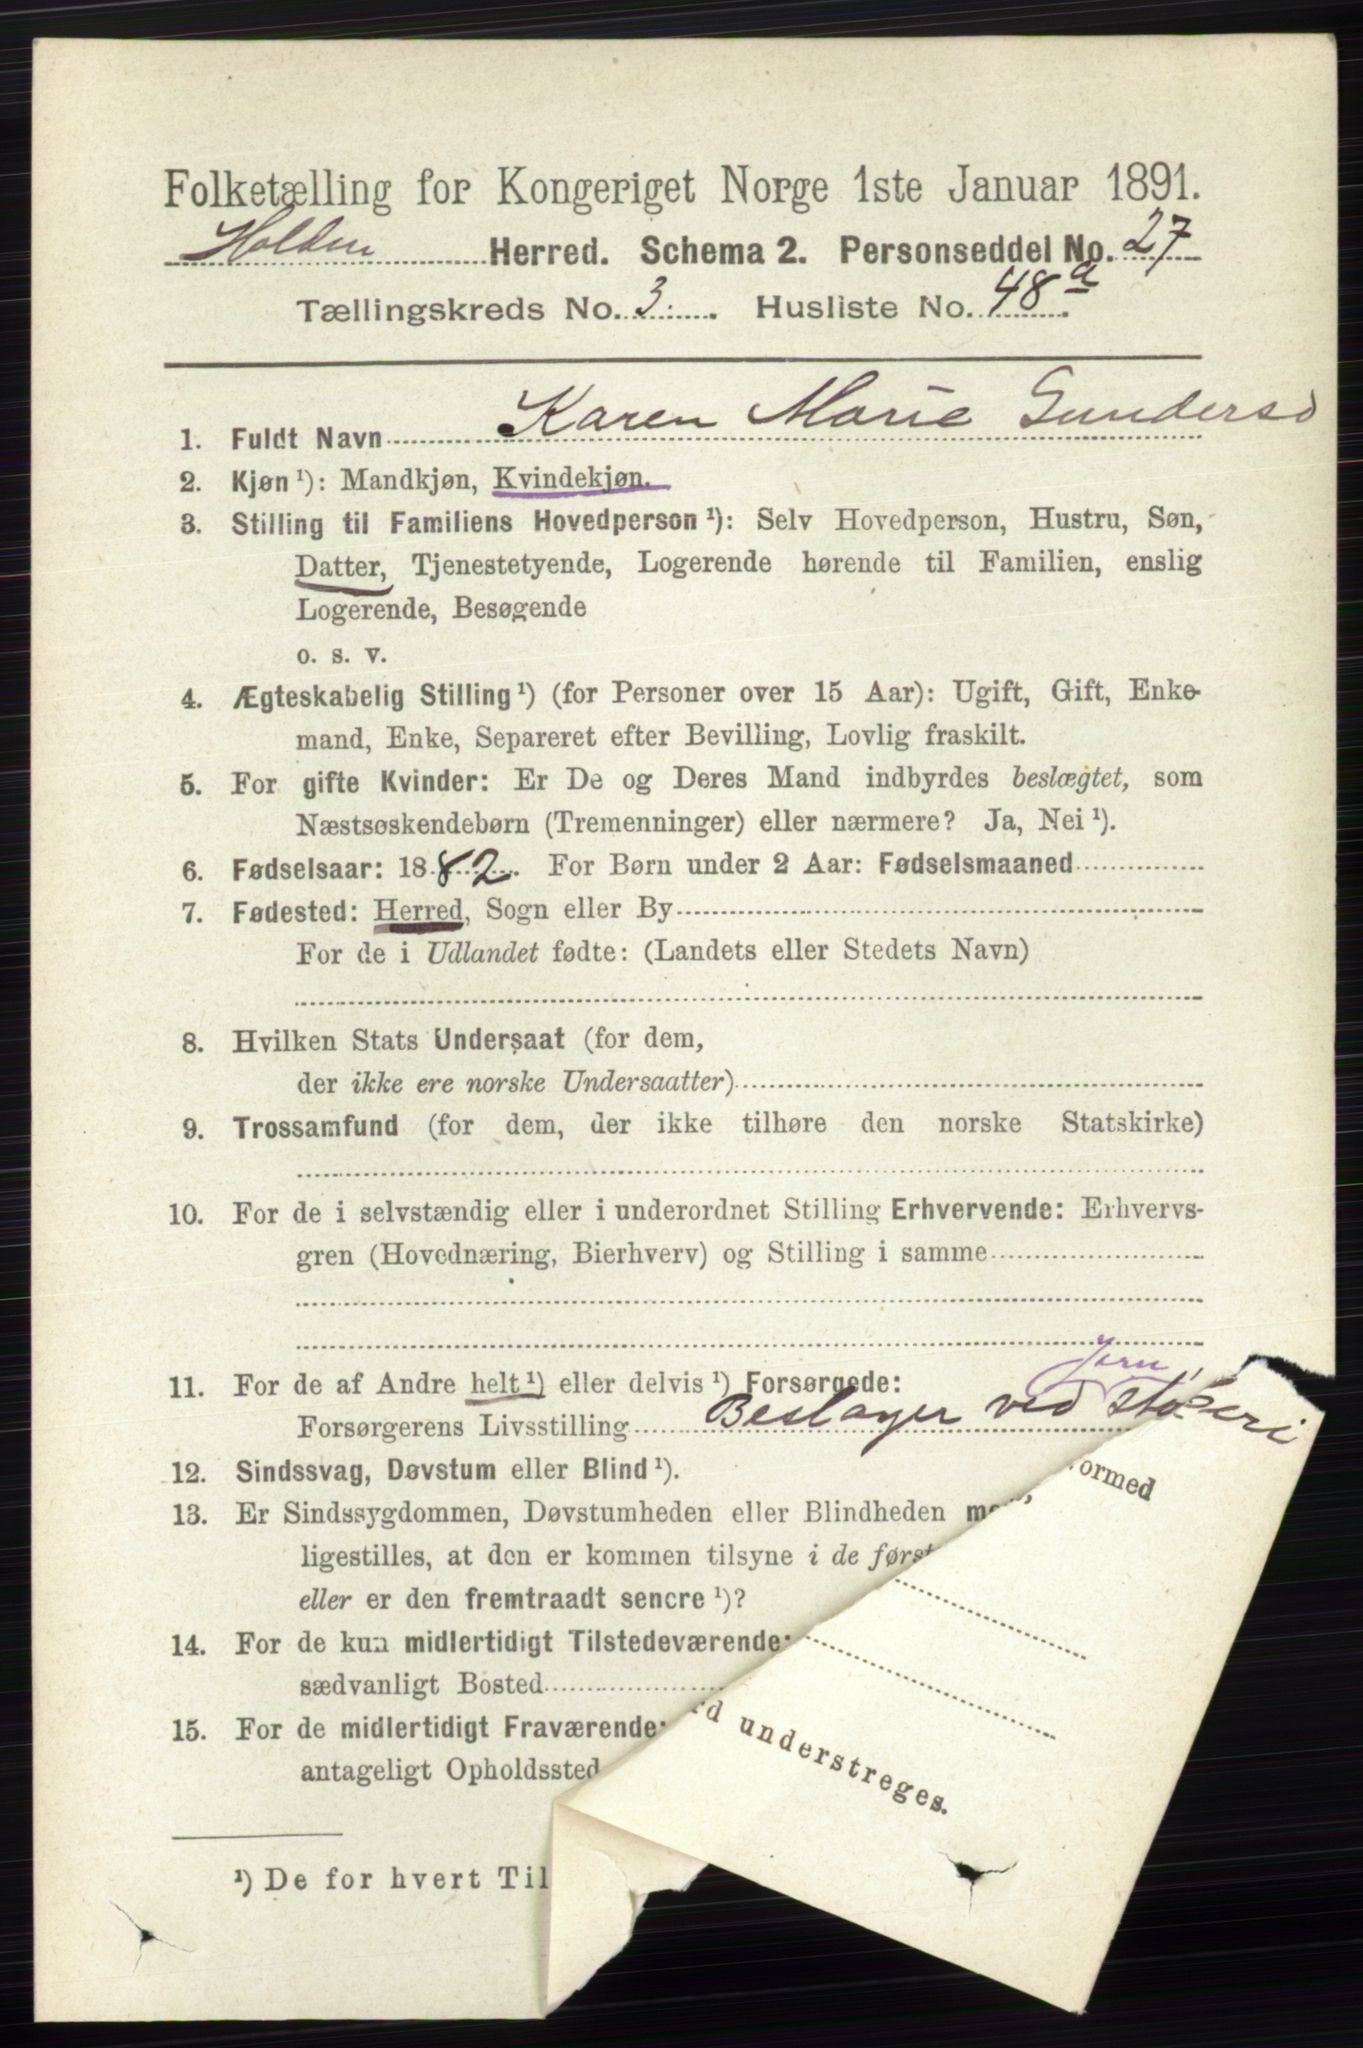 Folketælling for Kongeriget Norge 1ste Januar 1891.
Holden Herred. Schema 2. Personseddel No. 27
Tællingskreds No. 3. Husliste No. 48a
1. Fuldt Navn Karen Marie Gunders
2. Kjøn ¹): Mandkjøn, Kvindekjøn.
3. Stilling til Familiens Hovedperson ¹): Selv Hovedperson, Hustru, Søn,
Datter, Tjenestetyende, Logerende hørende til Familien, enslig
Logerende, Besøgende
o. s. v.
4. Ægteskabelig Stilling ¹) (for Personer over 15 Aar): Ugift, Gift, Enke-
mand, Enke, Separeret efter Bevilling, Lovlig fraskilt.
5. For gifte Kvinder: Er De og Deres Mand indbyrdes beslægtet, som
Næstsøskendebørn (Tremenninger) eller nærmere? Ja, Nei ¹).
6. Fødselsaar: 1882. For Børn under 2 Aar: Fødselsmaaned
7. Fødested: Herred, Sogn eller By
For de i Udlandet fødte: (Landets eller Stedets Navn)
8. Hvilken Stats Undersaat (for dem,
der ikke ere norske Undersaatter)
9. Trossamfund (for dem, der ikke tilhøre den norske Statskirke)
10. For de i selvstændig eller i underordnet Stilling Erhvervende: Erhvervs-
gren (Hovednæring, Bierhverv) og Stilling i samme
Jern
11. For de af Andre helt ¹) eller delvis ¹) Forsørgede:
Forsørgerens Livsstilling Beslager ved støberi
12. Sindssvag, Døvstum eller Blind ¹).
13. Er Sindssygdommen, Døvstumheden eller Blindheden
ligestilles, at den er kommen tilsyne i de først
eller er den fremtraadt senere ¹)?
14. For de kun midlertidigt Tilstedeværende:
sædvanligt Bosted
15. For de midlertidigt Fraværende:
antageligt Opholdssted
¹) De for hvert Til
vormed
rd understreges.